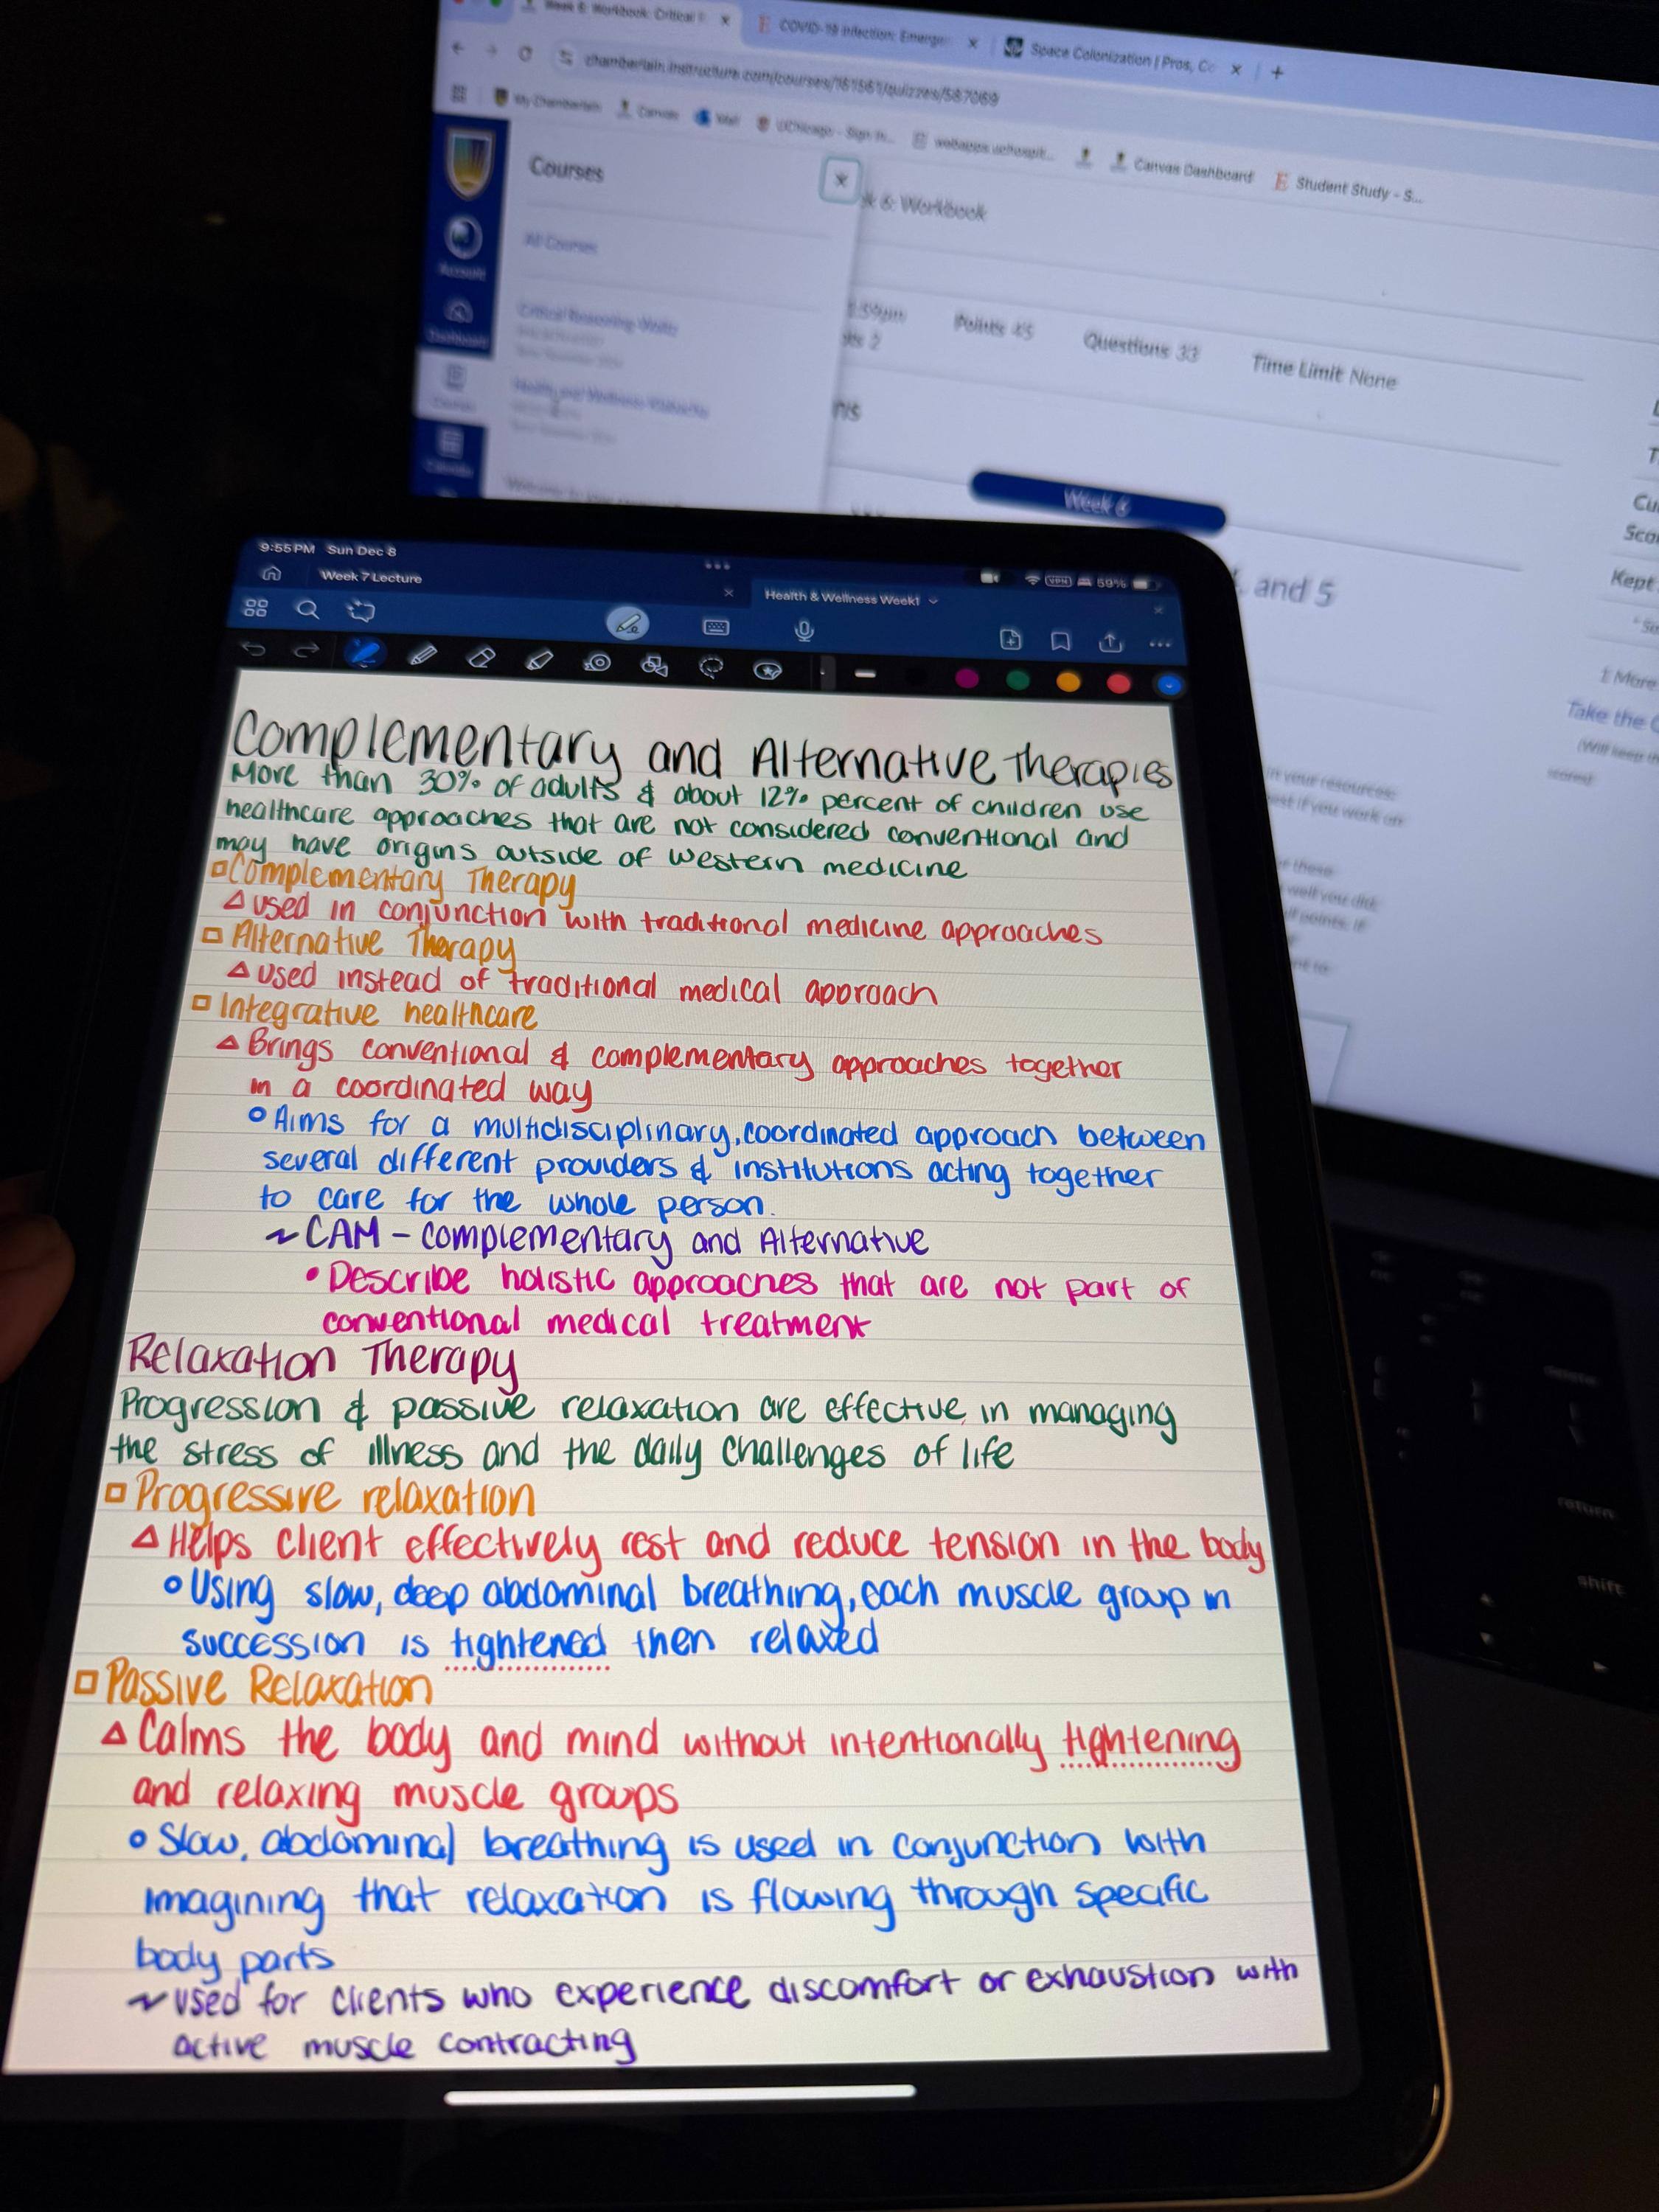 Week 6: Workbook: Critical
COVID-19 Infection: Emerge
Space Colonization | Pros, Co
chamberlain.instructure.com/courses/161561/quizzes/587069
My Chamberlain
Canvas
Mail
UChicago - Sign In...
webapps.uchospit...
Canvas Dashboard
Student Study - S...
Courses
k 6: Workbook
All Courses
Account
Dashboard
Points 45
Questions 33
Time Limit None
Week 6
and 5
Kept
Take the
9:55 PM Sun Dec 8
VPN
59%
Week 7 Lecture
Health & Wellness Week1
Complementary and Alternative Therapies
More than 30% of adults & about 12% percent of children use
healthcare approaches that are not considered conventional and
may have origins outside of western medicine
Complementary Therapy
used in conjunction with traditional medicine approaches
Alternative Therapy
used instead of traditional medical approach
Integrative healthcare
Brings conventional & complementary approaches together
in a coordinated way
Aims for a multidisciplinary, coordinated approach between
several different providers & institutions acting together
to care for the whole person.
~ CAM - complementary and Alternative
• Describe holistic approaches that are not part of
conventional medical treatment
Relaxation Therapy
Progression & passive relaxation are effective in managing
the stress of illness and the daily challenges of life
Progressive relaxation
Helps client effectively rest and reduce tension in the body
Using slow, deep abdominal breathing, each muscle group in
succession is tightened then relaxed
Passive Relaxation
Calms the body and mind without intentionally tightening
and relaxing muscle groups
Slow, abdominal breathing is used in conjunction with
imagining that relaxation is flowing through specific
body parts
~ used for clients who experience discomfort or exhaustion with
active muscle contracting
return
shift